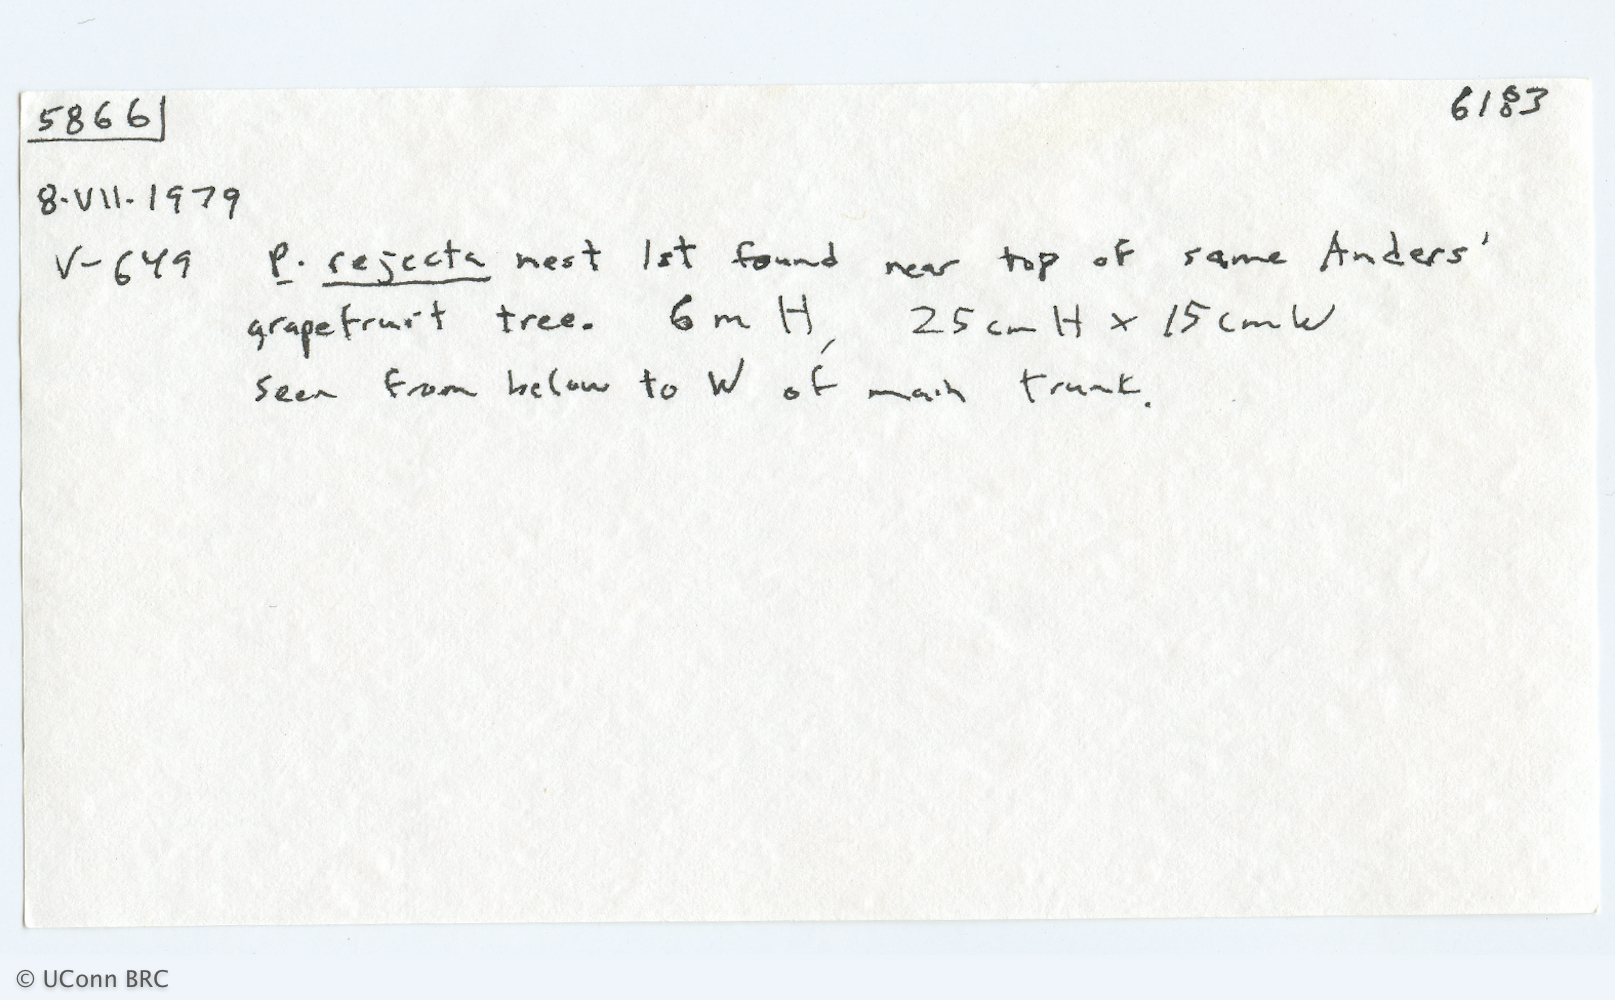 5866 6183
8.VII.1979
V-649 P. rejecta nest 1st found near top of same Anders'
grapefruit tree. 6 m H, 25 cm H x 15 cm W
seen from below to W of main trunk.
© UConn BRC